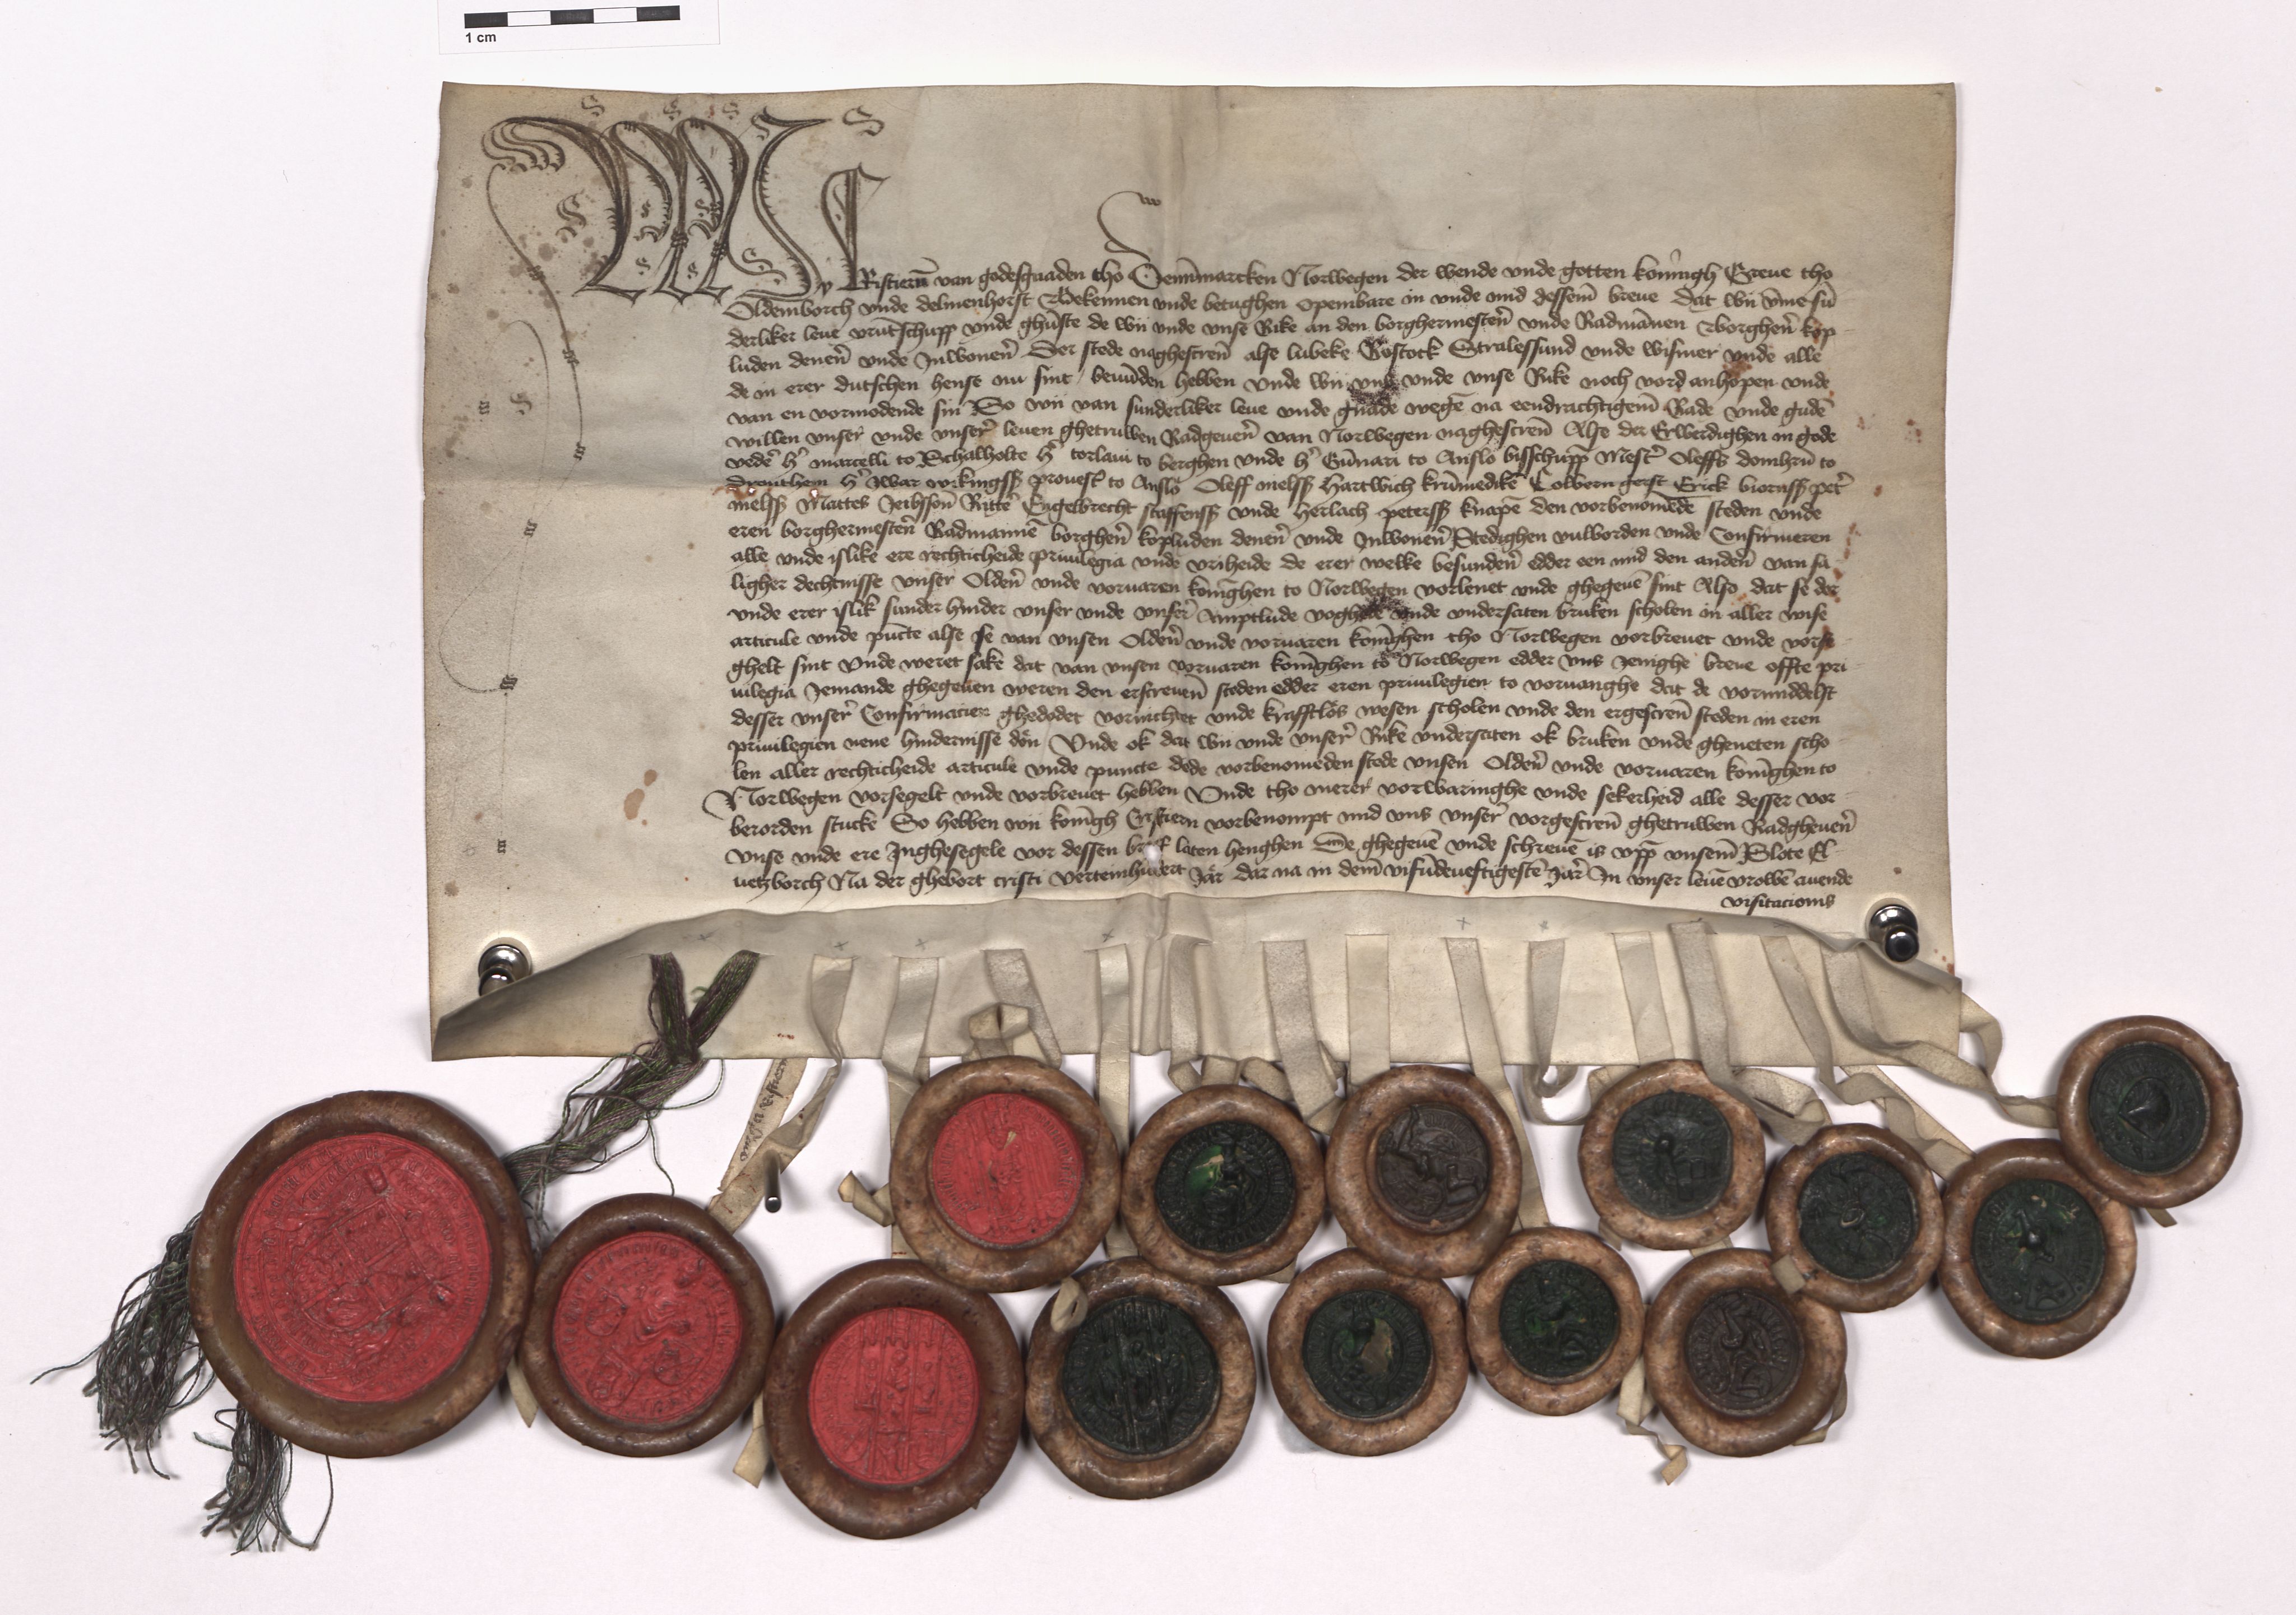 1 cm
Wy Cristiern̄ van godesgnaden tho Denn̄marcken Norwegen der wende vnde gotten koni̅gh Greue tho
Oldemborch vnde delmenhorst Bekennen vnde betughen openbare in vnde mid dessem̄ breue dat wii vm̄e sū
derliker leue vrūtschupp vnde ghūste de wii vnde vnse Rike an den borghermesteren̄ vnde Radmān̄en borghern̄ kop
luden denern̄ vnde Inwonern̄ Der stede naghescren̄ alse lubeke Rostock Stralessund vnde wismer vnde alle
de in erer dutschen hense nu sint / beuūden hebben vnde wii vns vnde vnse Rike noch vord anhopen vnde
van en vormodende sin So wii van sunderliker leue vnde gnade wegē na eendrachtigem̄ Rade vnde gudē
willen vnser vnde vnser̄ leuen ghetruwen Radgeuern̄ van Norwegen naghescren̄ Alse der Erwerdighen in gode
vedēr h' marcelli to Schalholte h' torlaui to berghen vnde h' Gūnari to Anslo bisschupp Mest' Oleffs domhrn̄ to
drouthem h' Iwar vikingss prouest to Anslo Oleff nielss Hartwich krūmedikē Colbern gerst Erick biornss pet'
nielss Mattes Ieibssōn Ritt'e Engelbrecht staffenss vnde Herlach peterss knapē den vorbenomēde steden vnde
eren borghermestern̄ Radmannē borghern̄ kopluden denern̄ vnde Inwonern̄ Stedighen vulborden vnde Confirmeren
alle vnde islike ere rechticheide priuilegia vnde vriheide de erer welke besundern̄ edder een mid den andern̄ van sa
ligher dechtnisse vnser Oldern̄ vnde voruaren koni̅ghen to Norwegen vorlenet vnde ghegeuē sint Also dat se der
vnde erer islik sunder hinder vnser vnde vnser̄ Amptlude voghede vnde vndersaten bruken scholen in aller wise
articule vnde pūcte alse se van vnsen Oldern̄ vnde voruaren koni̅ghen tho Norwegen vorbreuet vnde vorse
ghelt sint Vnde weret sake dat van vnsen voruaren koni̅ghen to Norwegen edder vns Ienighe breue offte pri
uilegia Iemande ghegeuen weren den erscreuen̄ steden edder eren priuilegien to voruanghe dat de vormiddelst
desser vnser' Confirmacien ghedodet vornichtet vnde krafftlos wesen scholen vnde den ergescren̄ steden in eren
priuilegien nene hindernisse don Vnde ok dat wii vnde vnser' Rike vndersaten ok bruken vnde gheneten scho
len aller rechticheide articule vnde puncte dede vorbenomeden stede vnsen Oldern̄ vnde voruaren koni̅ghen to
Norwegen vorsegelt vnde vorbreuet hebben Vnde tho merer' vorwaringhe vnde sekerheid alle desser vor
berorden stucke So hebben wii koni̅gh Cristiern vorbenompt mid vns vnser' vorgescren̄ ghetruwen Radgheuern̄
vnse vnde ere Inghesegele vor dessen breff laten henghen De ghegeuē vnde schreuē is vpp vnsem̄ Slote El
uetzborch Na der ghebort cristi vertein hundert Jar dar na in dem̄ vifundeueftigestē Jar' In vnser leuē vrowē auende
visitacionis